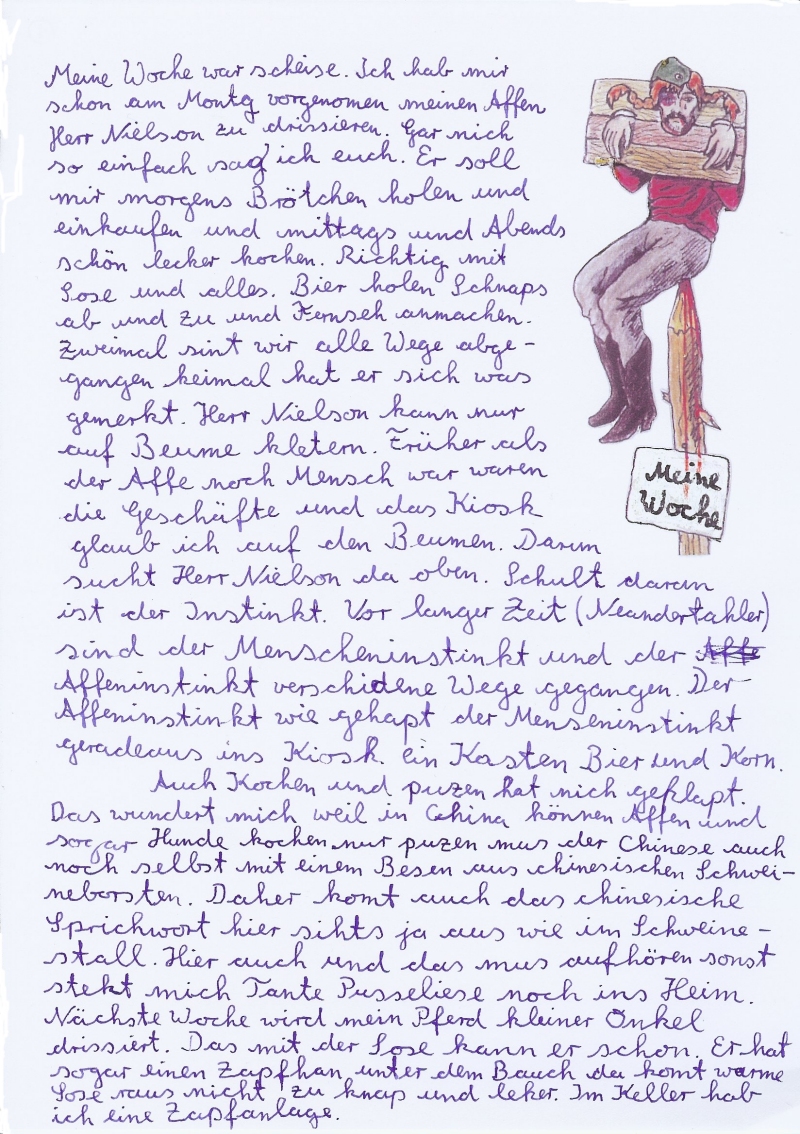 Meine Woche war scheise. Ich hab mir
schon am Montg vorgenomen meinen Affen
Herr Nielson zu drissieren. Gar nich
so einfach sag ich euch. Er soll
mir morgens Brötchen holen und
einkaufen und mittags und Abends
schön lecker kochen. Richtig mit
Sose und alles. Bier holen Schnaps
ab und zu und Fernseh anmachen.
Zweimal sint wir alle Wege abge-
gangen keimal hat er sich was
gemerkt. Herr Nielson kann nur
auf Beume kletern. Früher als
der Affe noch Mensch war waren
die Geschäfte und das Kiosk
glaub ich auf den Beumen. Darum
sucht Herr Nielson da oben. Schult daran
ist der Instinkt. Vor langer Zeit (Neandertahler)
sind der Menscheninstinkt und der Affe
Affeninstinkt verschidene Wege gegangen. Der
Affeninstinkt wie gehapt der Menseninstinkt
geradeaus ins Kiosk ein Kasten Bier und Korn.
Auch Kochen und puzen hat nich geklapt.
Das wundert mich weil in China können Affen und
sogar Hunde kochen nur puzen mus der Chinese auch
noch selbst mit einem Besen aus chinesischen Schwei-
neborsten. Daher komt auch das chinesische
Sprichwort hier sihts ja aus wie im Schweine-
stall. Hier auch und das mus aufhören sonst
stekt mich Tante Pusseliese noch ins Heim.
Nächste Woche wird mein Pferd kleiner Onkel
drissiert. Das mit der Sose kann er schon. Er hat
sogar einen Zapfhan unter dem Bauch da komt warme
Sose raus nicht zu knap und leker. Im Keller hab
ich eine Zapfanlage.
Meine
Woche